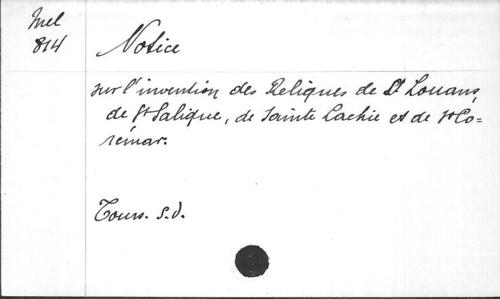 Mel
814
Notice
sur l'invention des Reliques de St Louans,
de St Salique, de Sainte Lachie et de St Co=
rémar.
Tours. s.d.